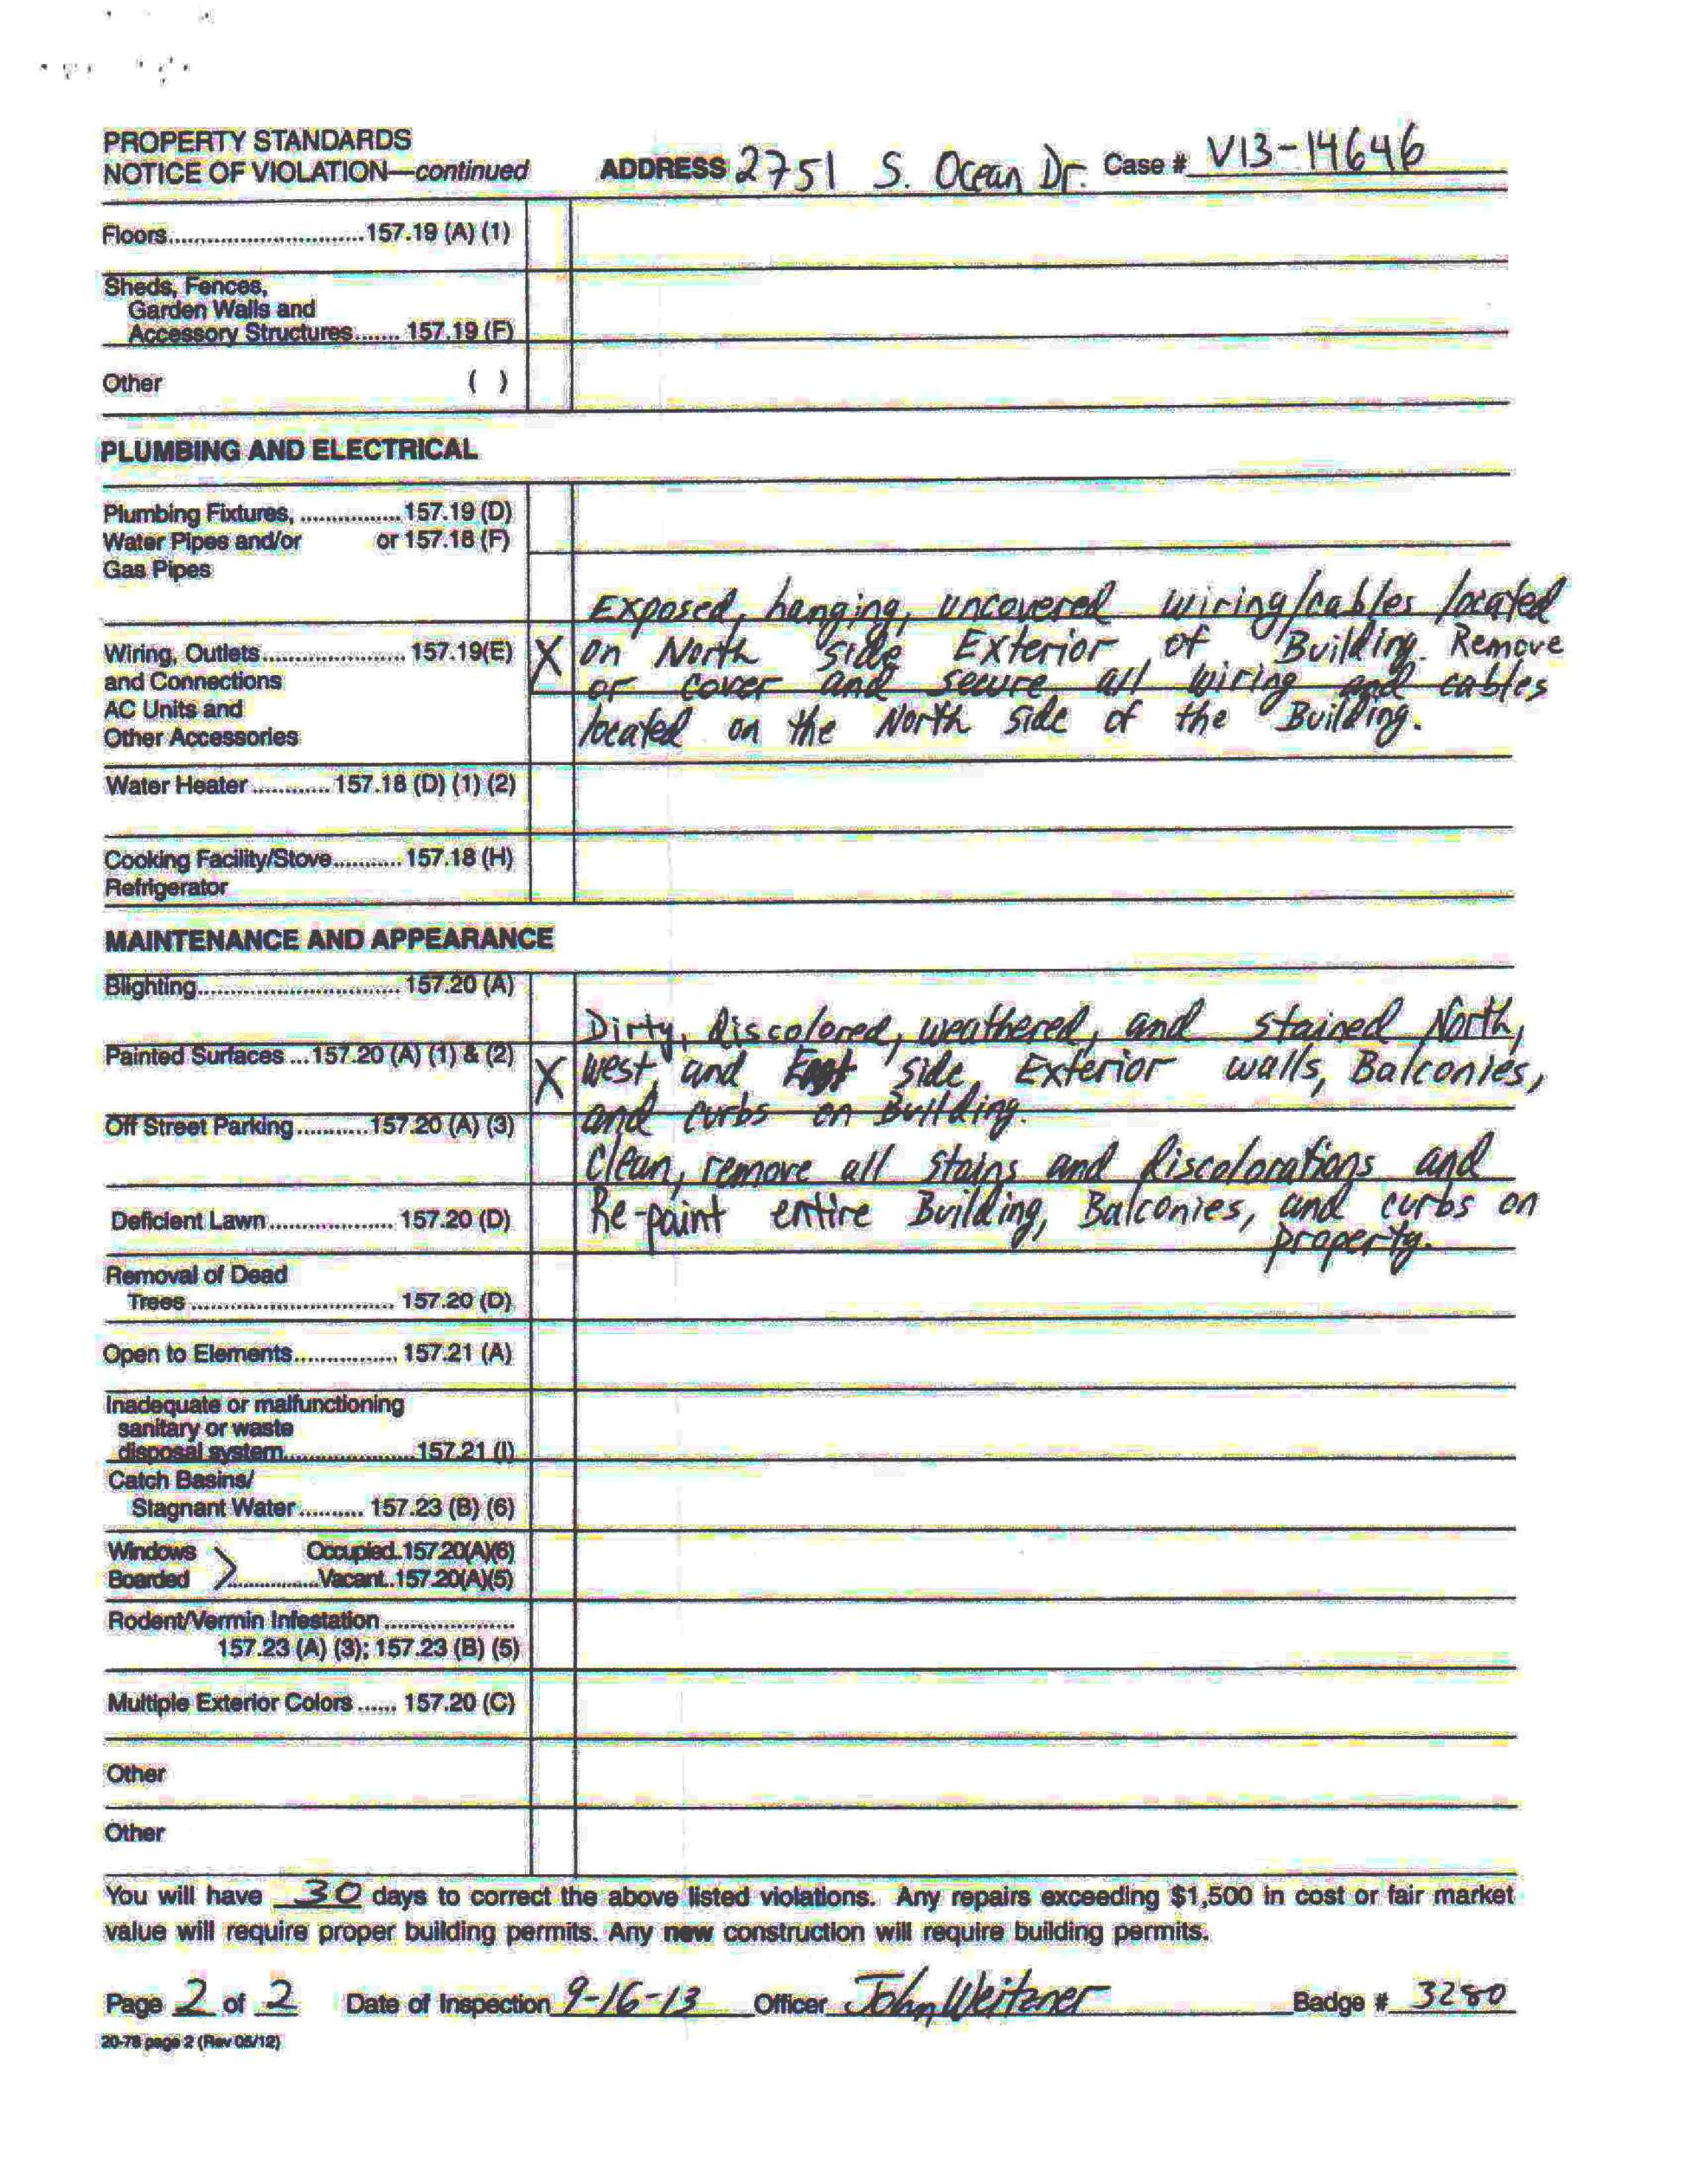 PROPERTY STANDARDS
NOTICE OF VIOLATION—continued ADDRESS 2751 S. Ocean Dr. Case # V13-14646
Floors..............................157.19 (A) (1)
Sheds, Fences,
Garden Walls and
Accessory Structures....... 157.19 (F)
Other ( )
PLUMBING AND ELECTRICAL
Plumbing Fixtures, ................157.19 (D)
Water Pipes and/or or 157.18 (F)
Gas Pipes
Exposed, hanging, uncovered wiring/cables located
Wiring, Outlets...................... 157.19(E) X on North side Exterior of Building. Remove
and Connections or cover and secure all wiring and cables
AC Units and located on the North side of the Building.
Other Accessories
Water Heater ............ 157.18 (D) (1) (2)
Cooking Facility/Stove........... 157.18 (H)
Refrigerator
MAINTENANCE AND APPEARANCE
Blighting............................... 157.20 (A)
Dirty, discolored, weathered, and stained North,
Painted Surfaces ...157.20 (A) (1) & (2) X West, and East side, Exterior walls, Balconies,
Off Street Parking...........157.20 (A) (3) and curbs on Building.
Clean, remove all stains and discolorations and
Deficient Lawn................... 157.20 (D) Re-paint entire Building, Balconies, and curbs on
property.
Removal of Dead
Trees ............................... 157.20 (D)
Open to Elements................ 157.21 (A)
Inadequate or malfunctioning
sanitary or waste
disposal system....................157.21 (I)
Catch Basins/
Stagnant Water .......... 157.23 (B) (6)
Windows Occupied.157.20(A)(6)
Boarded ..............Vacant..157.20(A)(5)
Rodent/Vermin Infestation ....................
157.23 (A) (3); 157.23 (B) (5)
Multiple Exterior Colors ...... 157.20 (C)
Other
Other
You will have 30 days to correct the above listed violations. Any repairs exceeding $1,500 in cost or fair market
value will require proper building permits. Any new construction will require building permits.
Page 2 of 2 Date of Inspection 9-16-13 Officer John Weitzner Badge # 3280
20-78 page 2 (Rev 05/12)